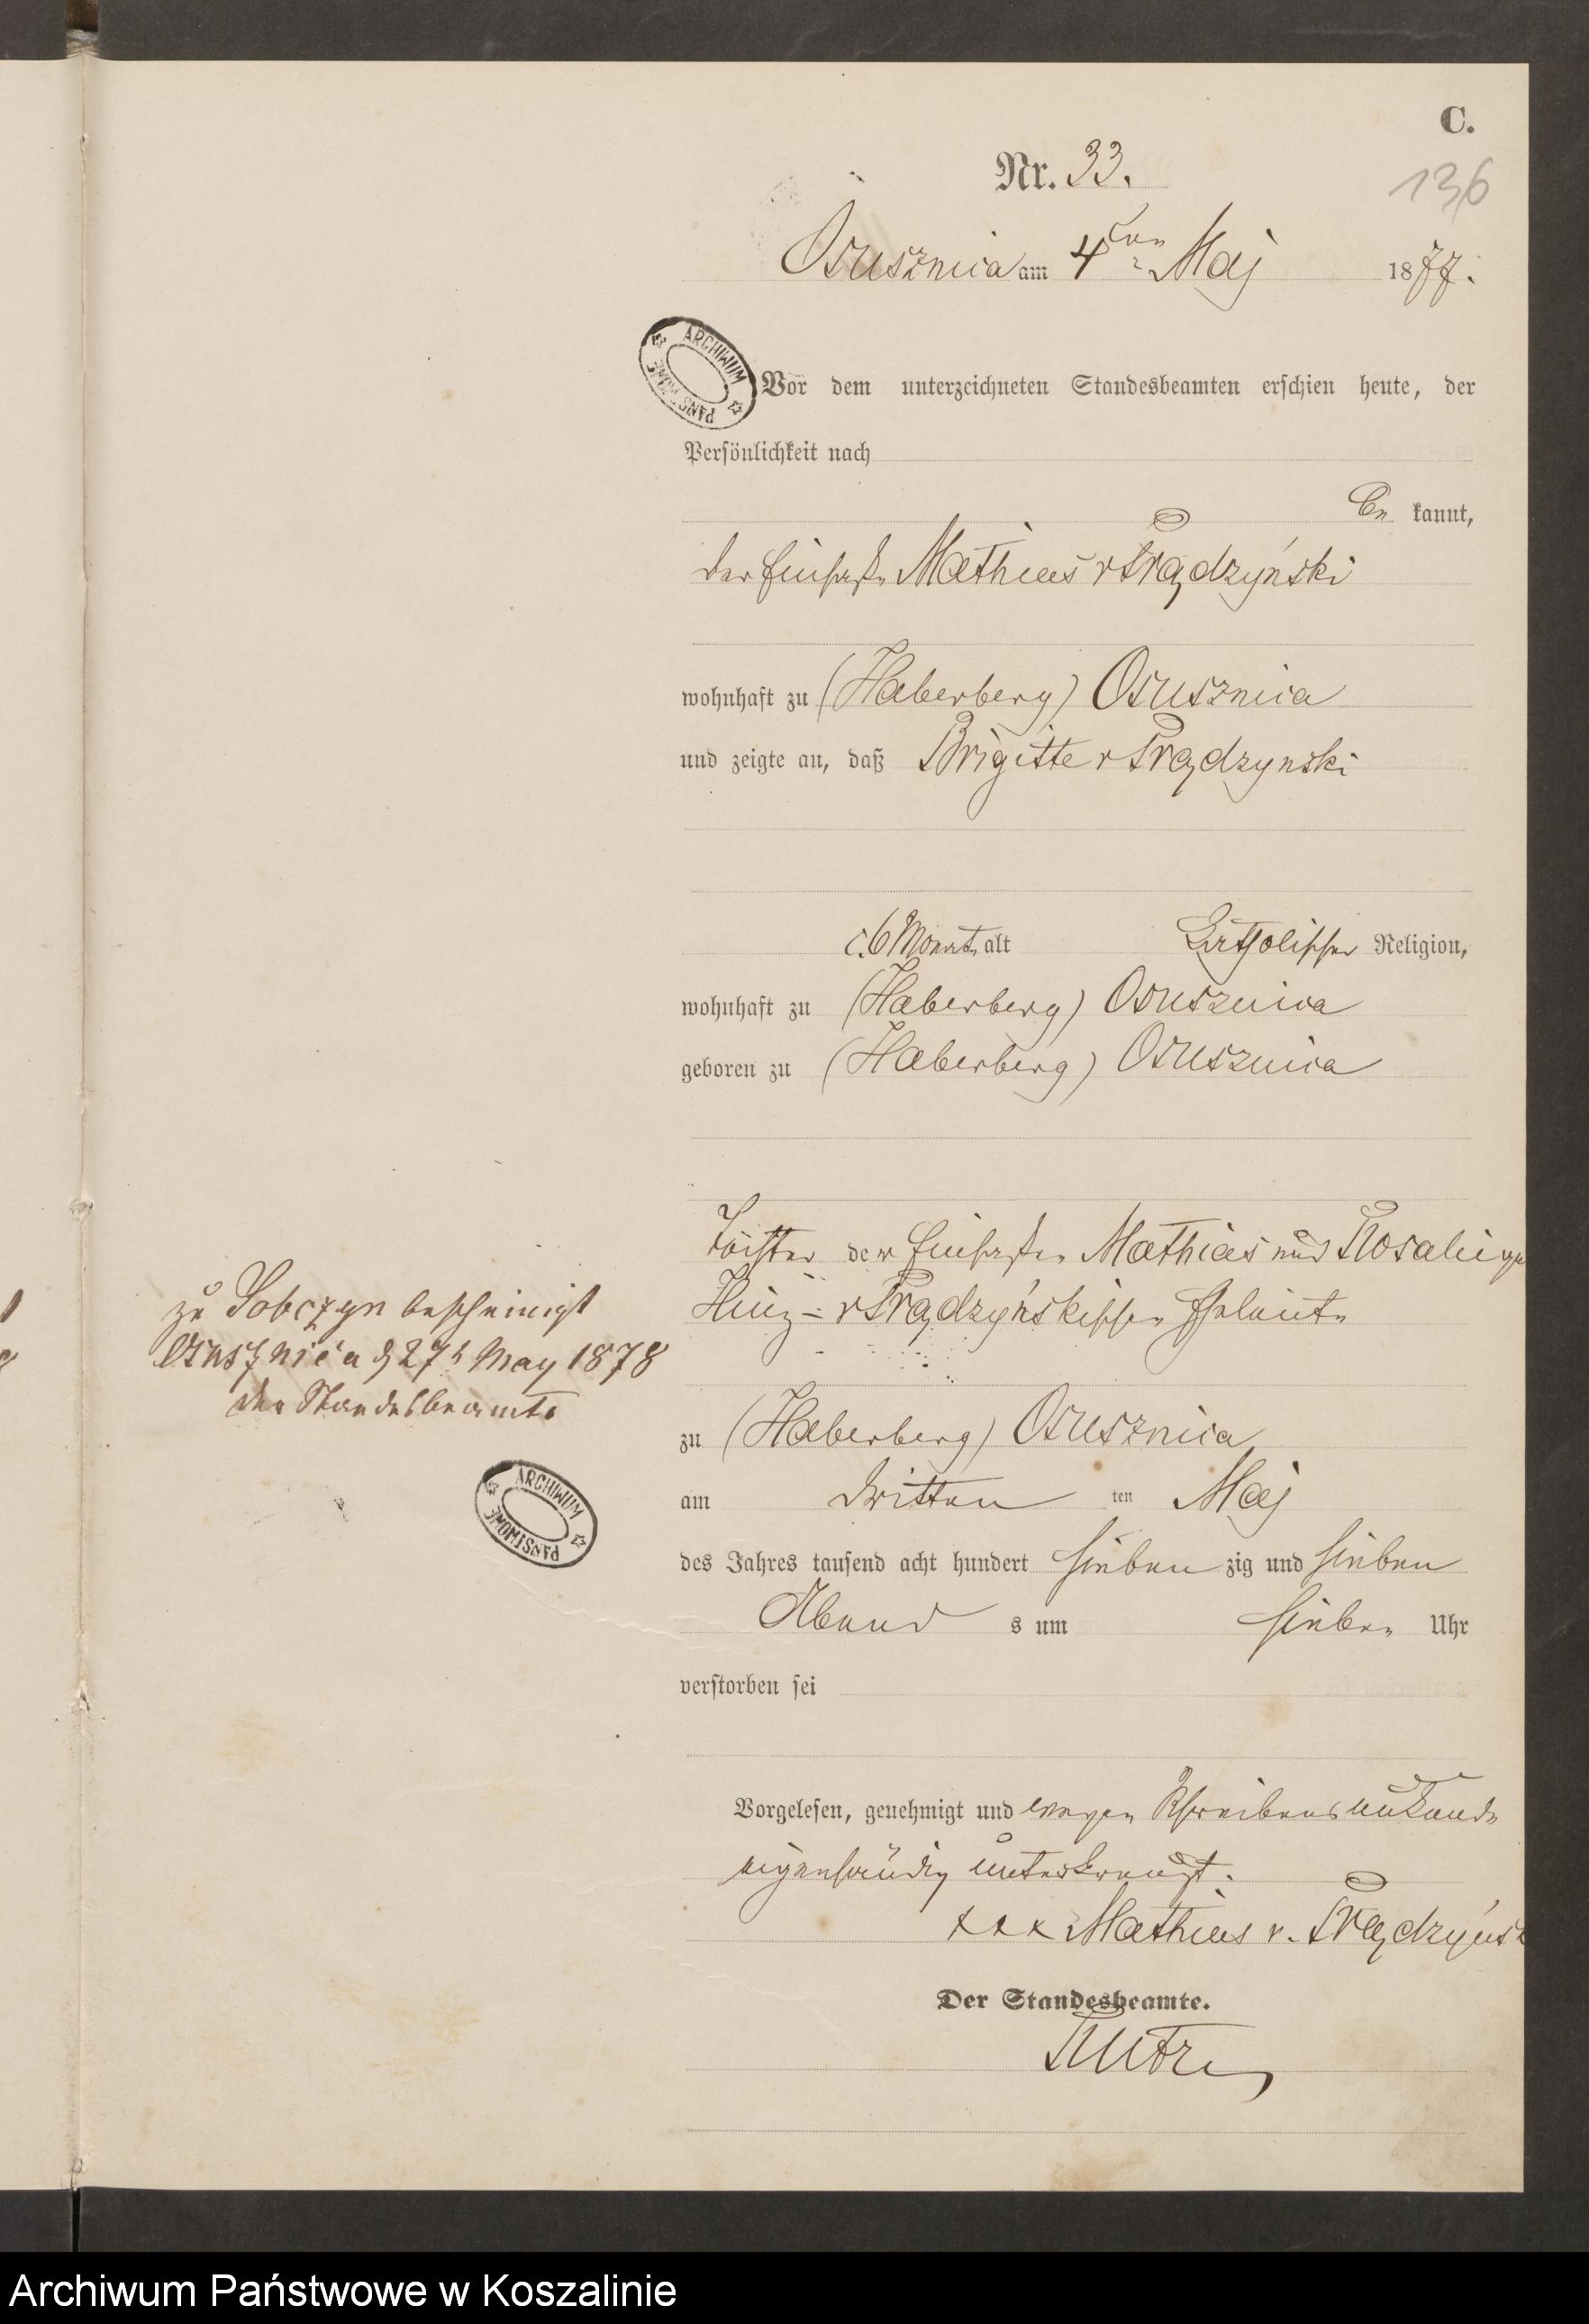 C.
Nr. 33.
136
Osusznica am 4ten Maj 1877.
Vor dem unterzeichneten Standesbeamten erschien heute, der
Persönlichkeit nach
be kannt,
der Einsasse Mathias v Prądzyński
wohnhaft zu (Haberberg) Osusznica
und zeigte an, daß Brigitte v Prądzynski
c. 6 Monate alt katholischer Religion,
wohnhaft zu (Haberberg) Osusznica
geboren zu (Haberberg) Osusznica
Tochter der Einsassen Mathias und Rosalie
v Prądzyńskischen Eheleute
zu (Haberberg) Osusznica
am dritten ten Maj
des Jahres tausend acht hundert sieben zig und sieben
Abend s um sieben Uhr
verstorben sei
Vorgelesen, genehmigt und wegen Schreibensunkunde
eigenhändig unterkreuzt.
xxx Mathias v. Prądzyńsk
Der Standesbeamte.
zu Sobczyn bescheinigt
Osusznica d 27t May 1878
der Standesbeamte
ARCHIWUM PAŃSTWOWE
ARCHIWUM PAŃSTWOWE
Archiwum Państwowe w Koszalinie